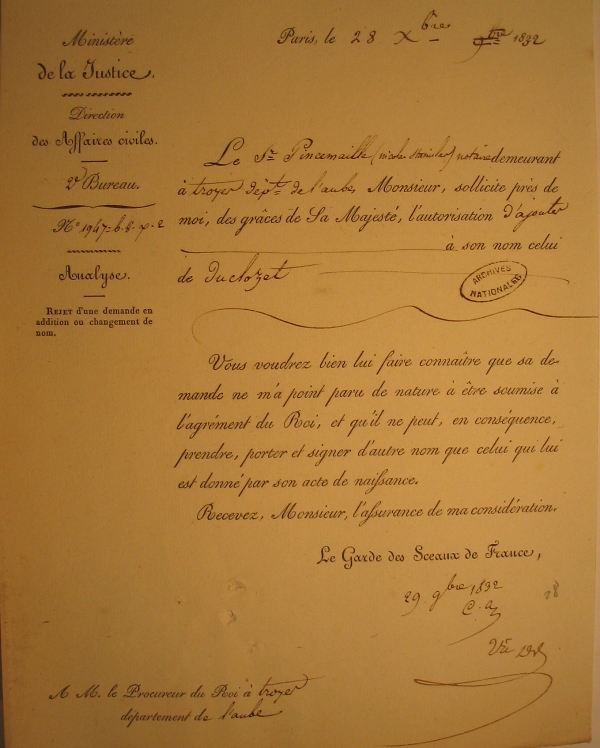 Ministère
de la Justice.
Direction
des Affaires civiles.
2e Bureau.
No 1947-b-8-
Analyse.
REJET d'une demande en
addition ou changement de
nom.
Paris, le 28 Xbre 9bre 1832
Le Sr Pincemaille (nicolas stanislas) notaire demeurant
à troyes dépt. de l'aube, Monsieur, sollicite près de
moi, des grâces de Sa Majesté, l'autorisation d'ajouter
à son nom celui
de duclozet
ARCHIVES
NATIONALES
Vous voudrez bien lui faire connaître que sa de-
mande ne m'a point paru de nature à être soumise à
l'agrément du Roi, et qu'il ne peut, en conséquence,
prendre, porter et signer d'autre nom que celui qui lui
est donné par son acte de naissance.
Recevez, Monsieur, l'assurance de ma considération.
Le Garde des Sceaux de France,
29 9bre 1832
28
A M. le Procureur du Roi à troyes
département de l'aube